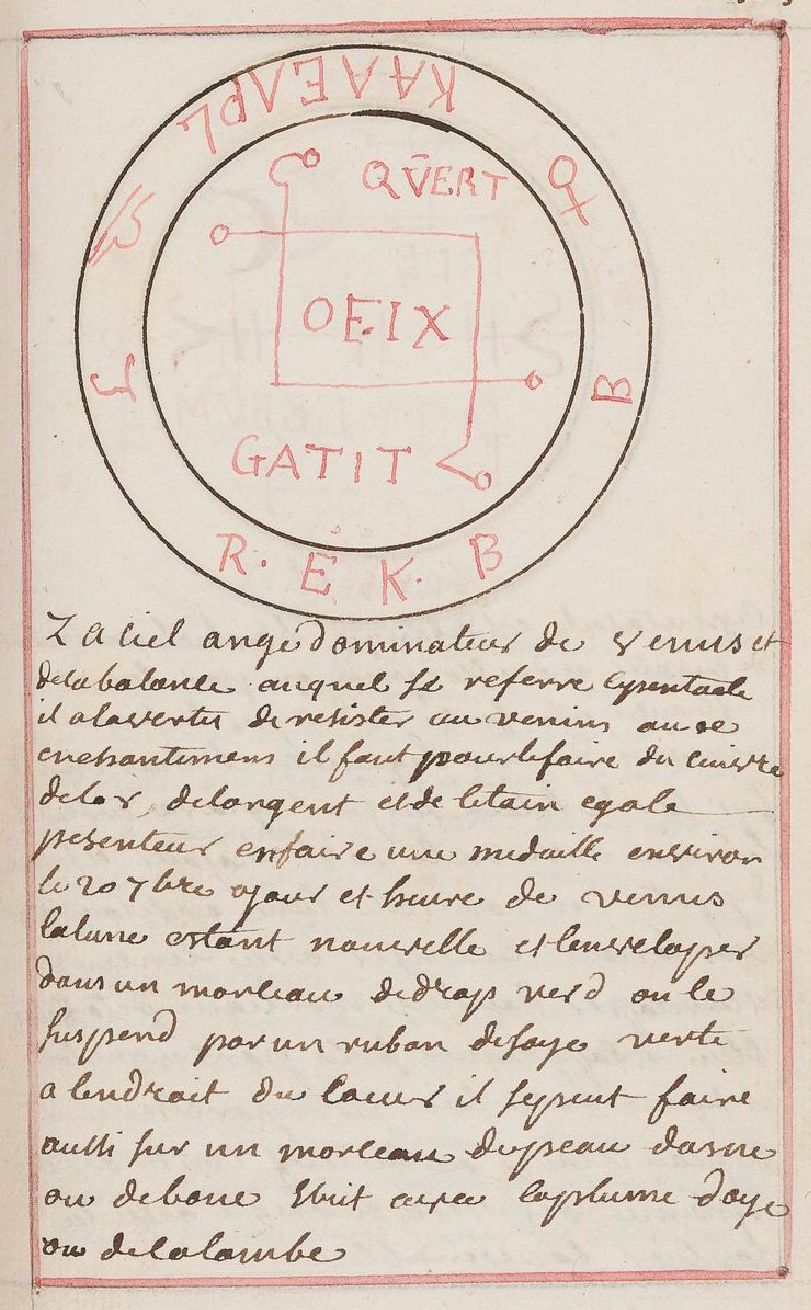 QVERT
OEIX
GATIT
B
R. E K. B
Zaciel ange dominateur de Venus et
delabalance auquel se referre cepentacle
il alavertu de resister au venins au
enchantemens il faut pourlefaire du cuivre
delor, delargent et de letain egale
pesenteur enfaire une medaille environ
le 20 7bre jour et heure de venus
lalune estant nouvelle et lenveloper
dans un morceau dedrap verd on le
suspend par un ruban desoye verte
a lendroit du coeur il sepeut faire
aussi sur un morceau depeau dasne
ou debouc Ecrit avec laplume doye
ou delalombe